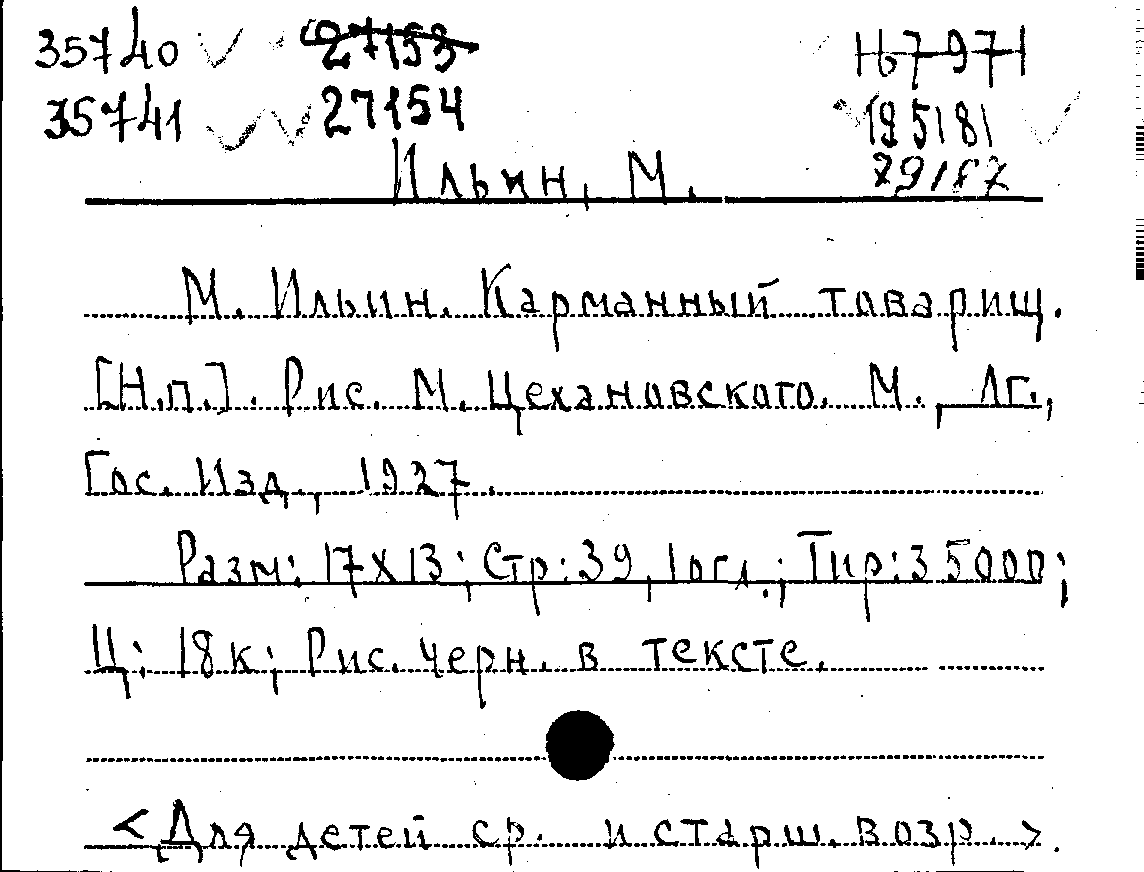 35740 27153 Н67971
35741 27154 195181
Ильин, М. 79187
М. Ильин. Карманный товарищ.
[Н.п.]. Рис. М. Цехановского. М., Лг.,
Гос. Изд., 1927.
Разм: 17х13; Стр: 39, 1огл.; Тир: 35000;
Ц: 18к; Рис. черн. в тексте.
<Для детей ср. и старш. возр.>.